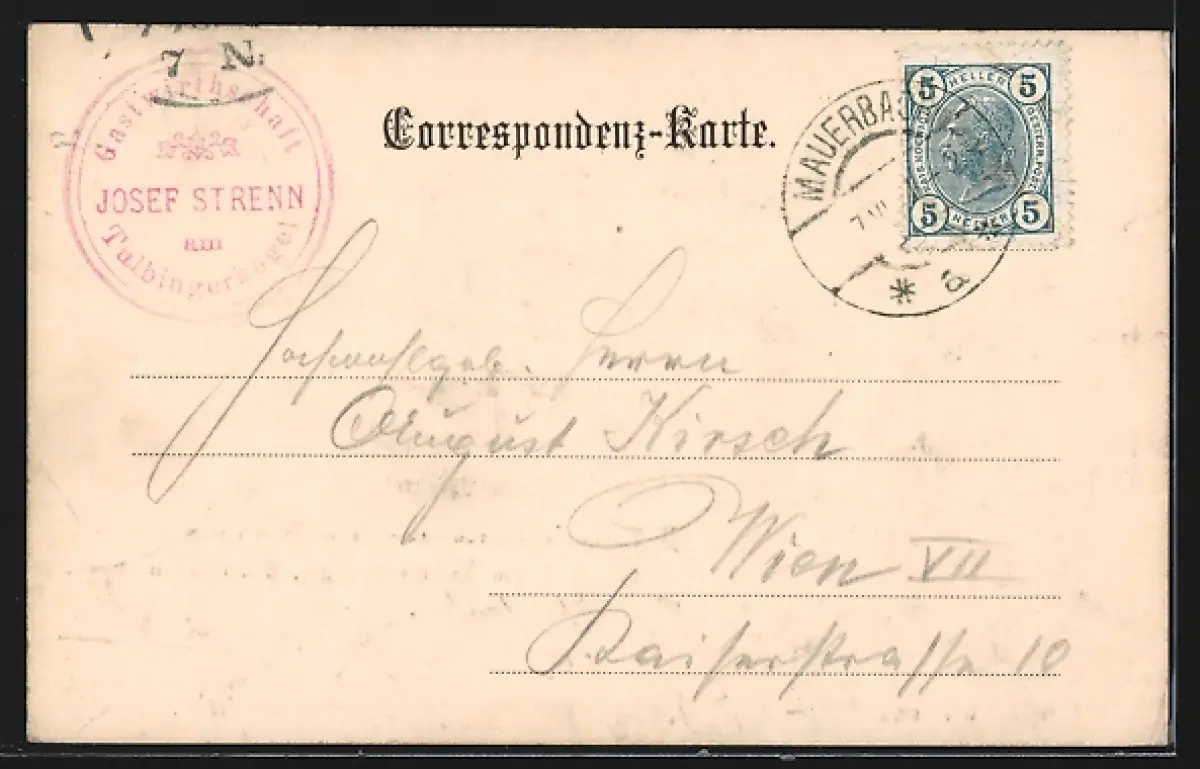 7 N.
Gastwirthschaft
JOSEF STRENN
am
Tulbingerkogel
Correspondenz-Karte.
MAUERBA
7
a
5 HELLER 5
5 HELLER 5
Hochwohlgeb. Herrn
August Kirsch
Wien VII
Kaiserstraße 10